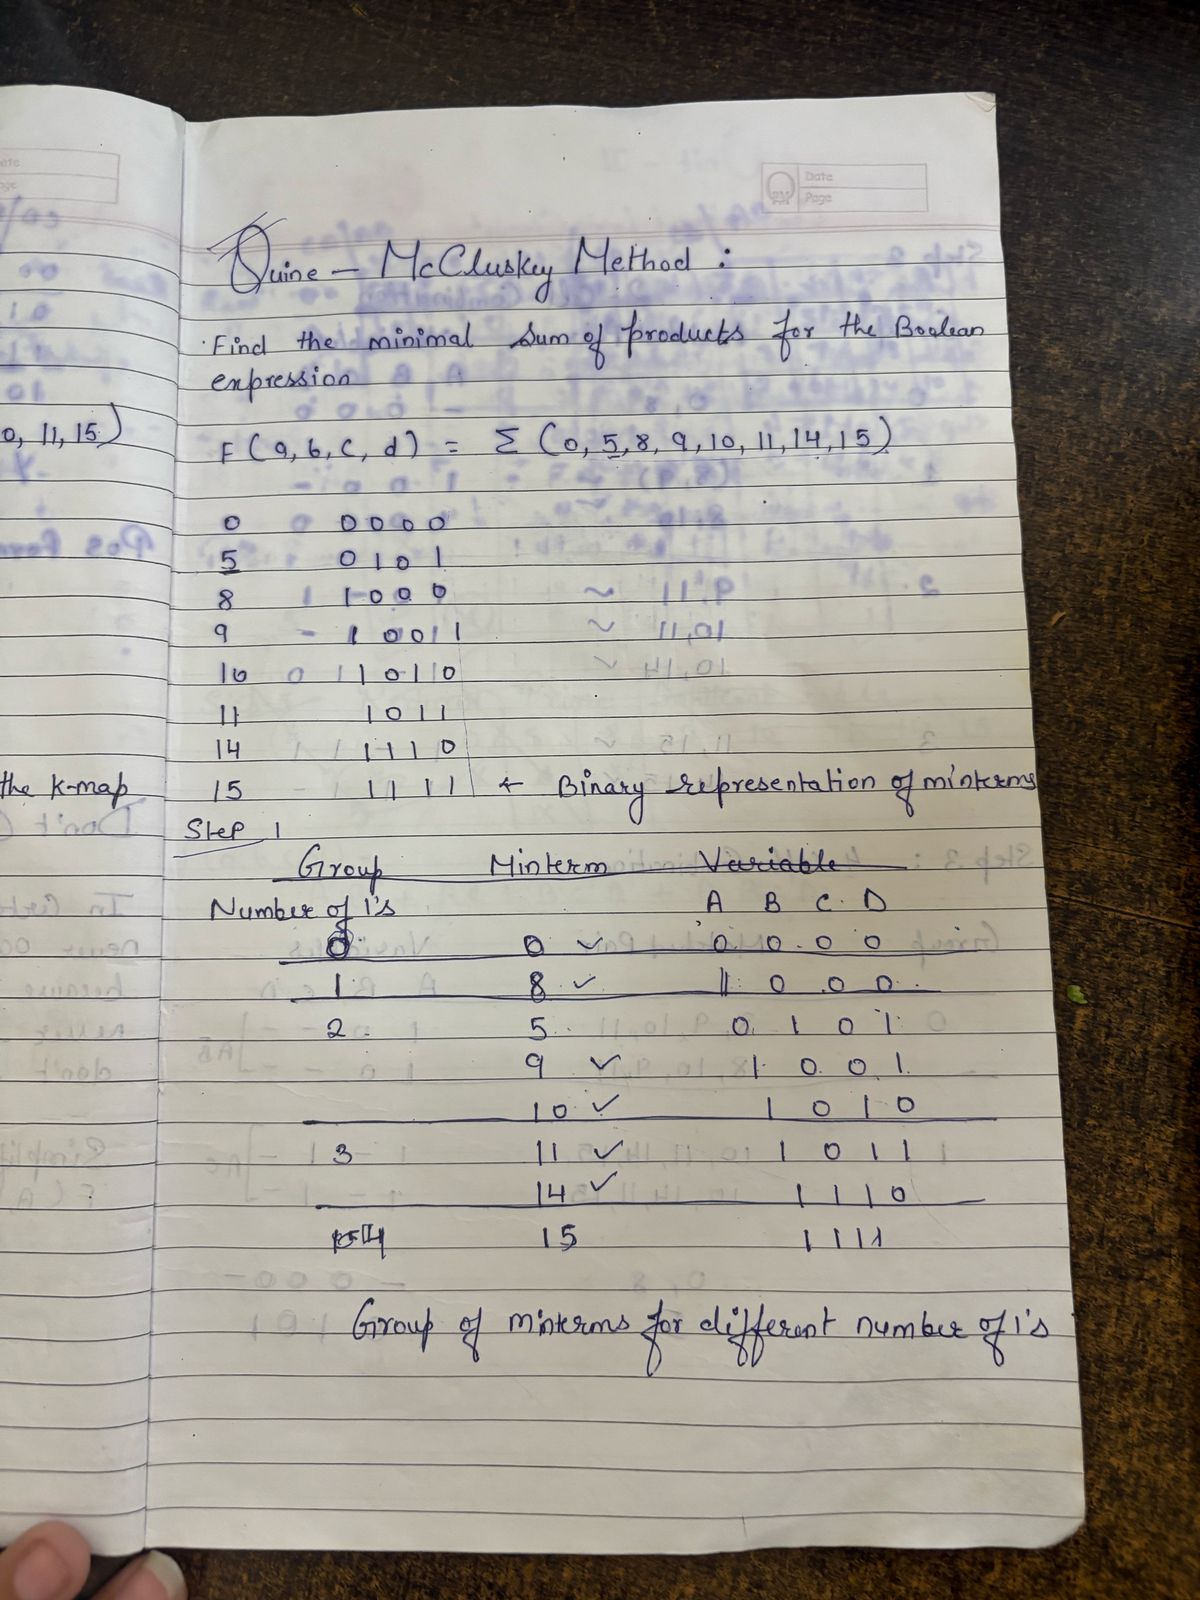 Date
Page
Quine - McCluskey Method :
Find the minimal sum of products for the Boolean
expression
0, 11, 15)
F (a, b, c, d) = Σ (0, 5, 8, 9, 10, 11, 14, 15)
0 0 0 0 0
5 0 1 0 1
8 1 0 0 0
9 1 0 0 1
10 1 0 1 0
11 1 0 1 1
14 1 1 1 0
the K-map
15 1 1 1 1 ← Binary representation of minterms
Step 1
Group Minterm Variable
Number of 1's A B C D
0 0 ✓ 0 0 0 0
1 8 ✓ 1 0 0 0
2 5 0 1 0 1
9 ✓ 1 0 0 1
10 ✓ 1 0 1 0
3 11 ✓ 1 0 1 1
14 ✓ 1 1 1 0
4 15 1 1 1 1
Group of minterms for different number of 1's